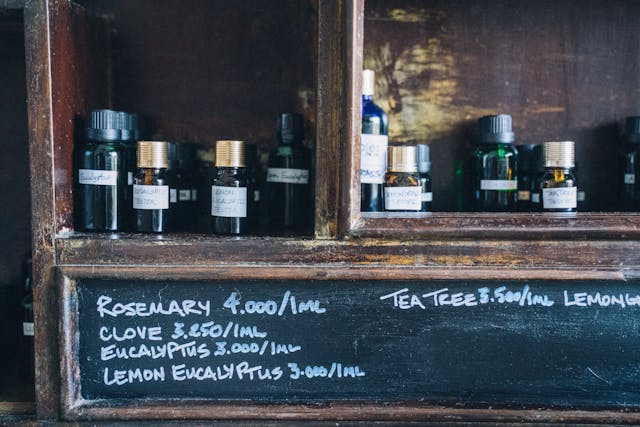 Eucalyptus
EUCALYPTUS
TESTER
LEMON
EUCALYPTUS
TESTER
ROSEMARY 4.000/1ML
CLOVE 3.250/1ML
EUCALYPTUS 3.000/1ML
LEMON EUCALYPTUS 3.000/1ML
TEA TREE 3.500/1ML LEMONG